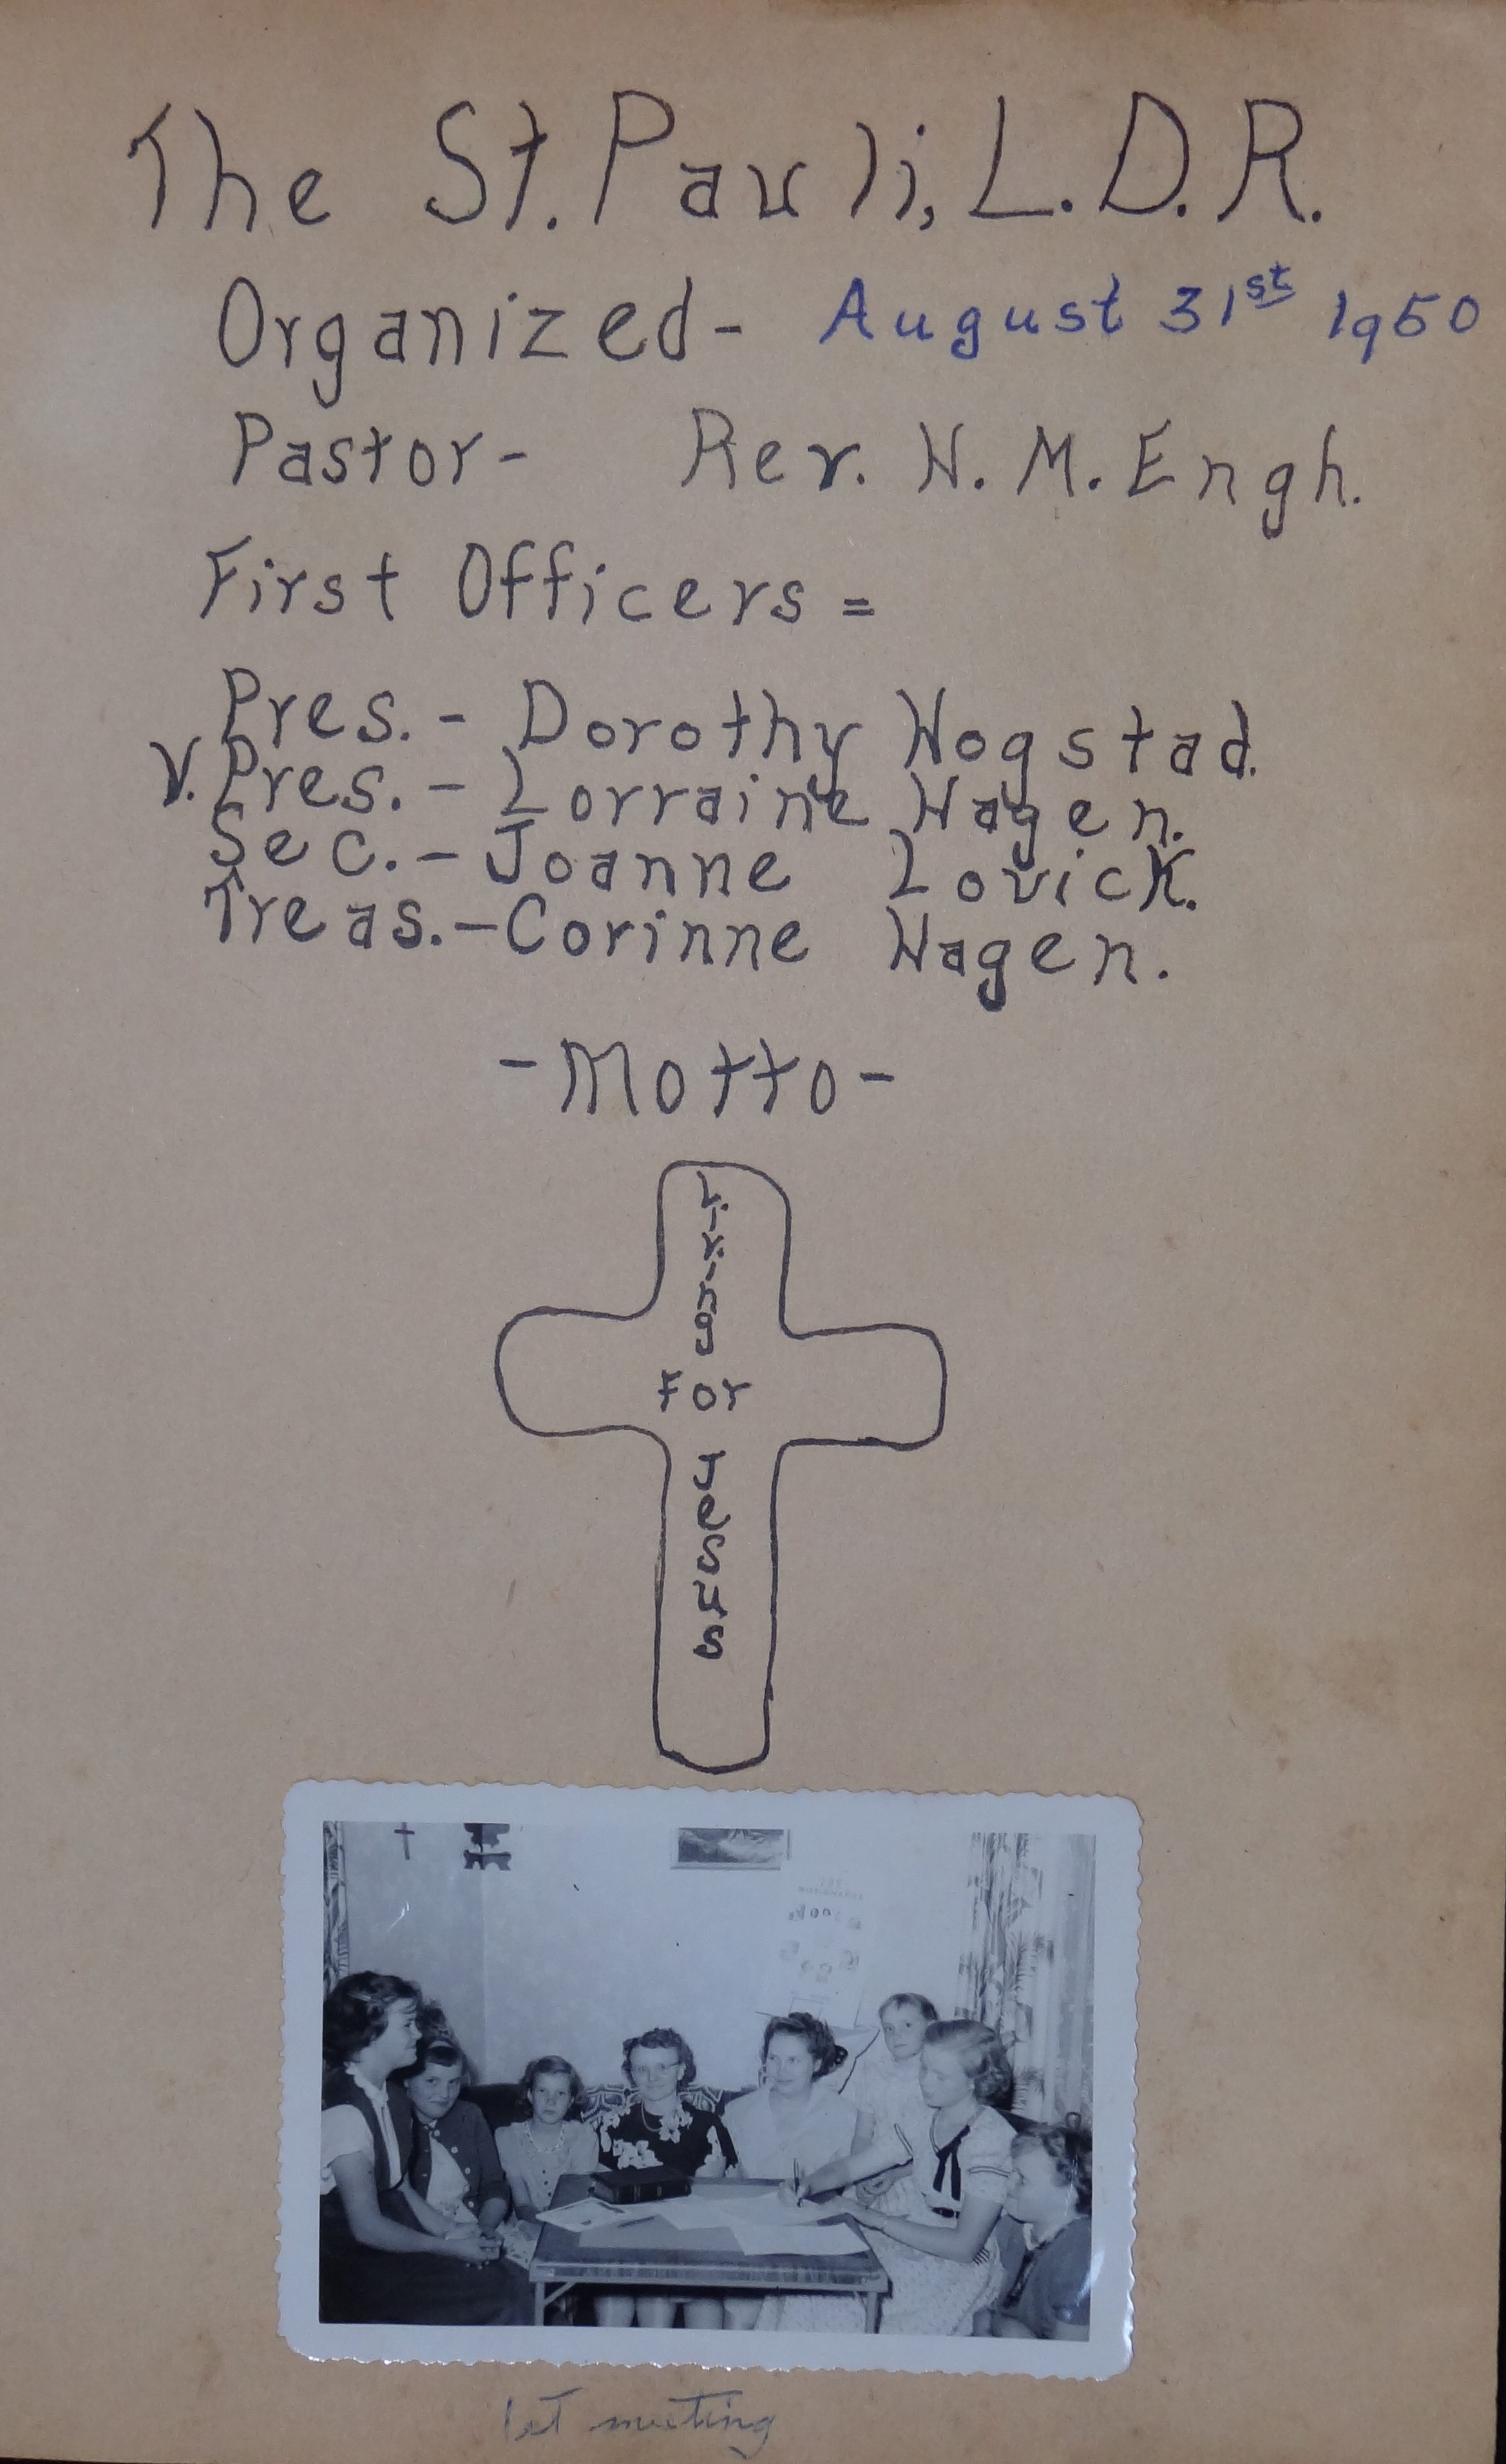 The St. Pauli, L.D.R.
Organized- August 31st 1950
Pastor- Rev. H. M. Engh.
First Officers =
Pres.- Dorothy Hogstad.
V. Pres.- Lorraine Hagen.
Sec.- Joanne Lovick.
Treas.- Corinne Hagen.
-Motto-
Living
For
Jesus
1st meeting